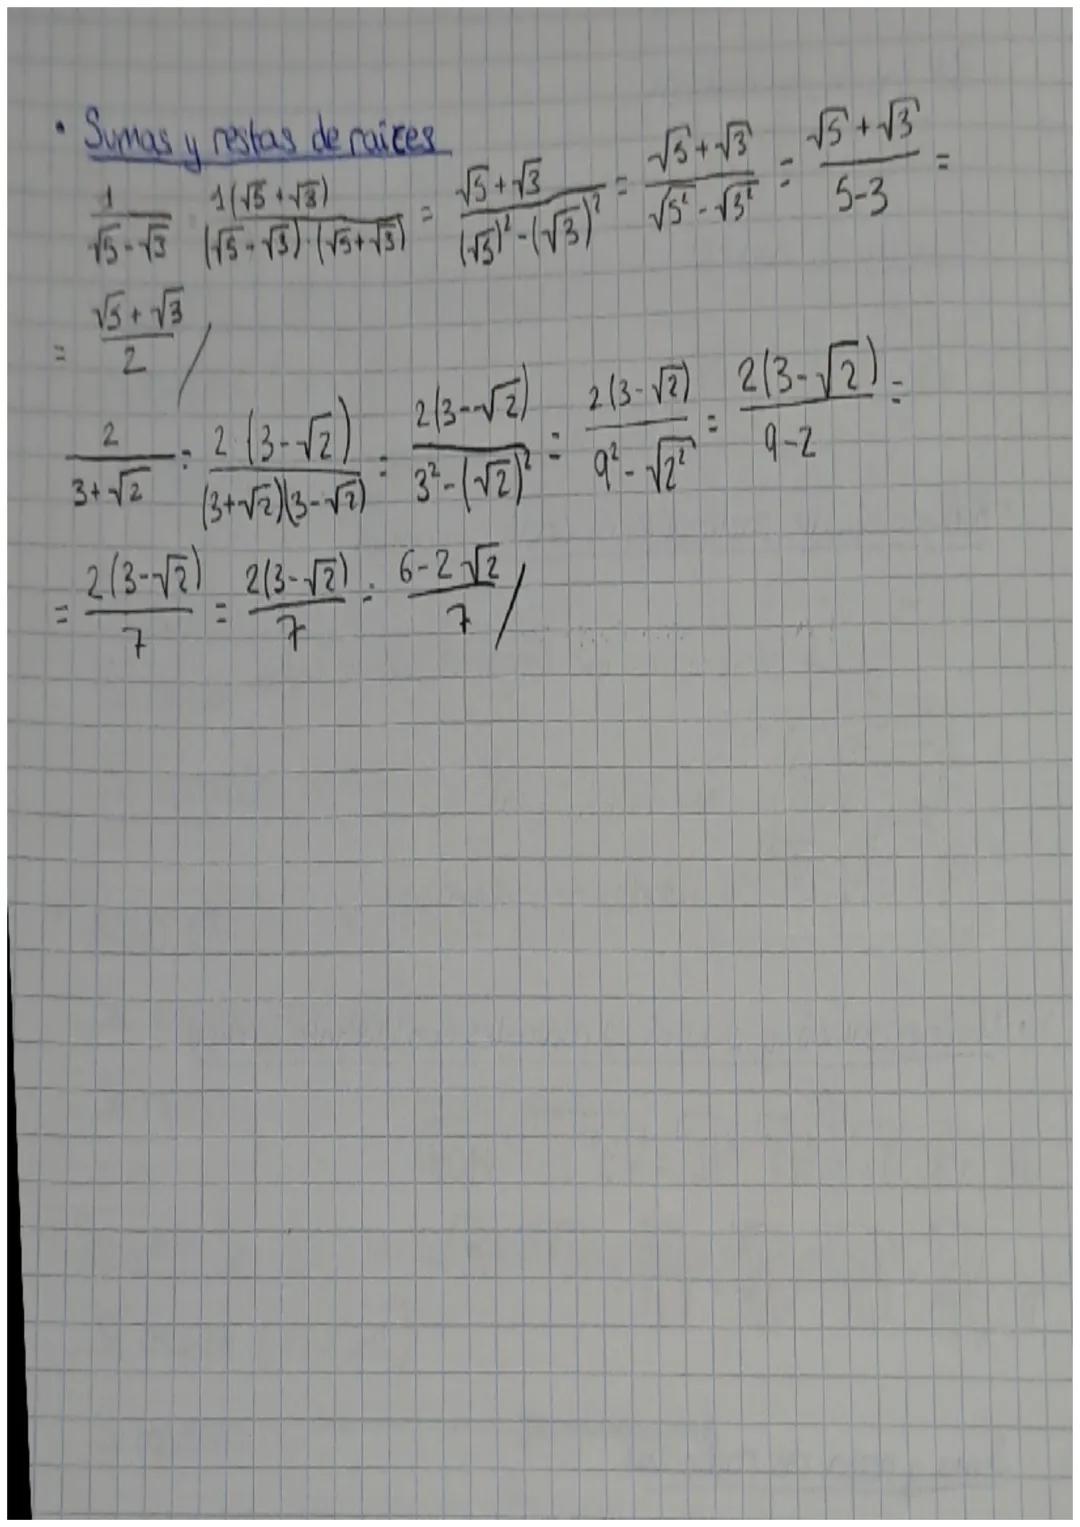 • Sumas y restas de raices
1/(√5-√3) = 1(√5+√3)/((√5-√3)·(√5+√3)) = (√5+√3)/((√5)²-(√3)²) = (√5+√3)/(√5²-√3²) = (√5+√3)/(5-3) =
= (√5+√3)/2 /
2/(3+√2) = 2·(3-√2)/((3+√2)(3-√2)) = 2(3--√2)/(3²-(√2)²) = 2(3-√2)/(9²-√2²) = 2(3-√2)/(9-2) =
= 2(3-√2)/7 = 2(3-√2)/7 = (6-2√2)/7 /